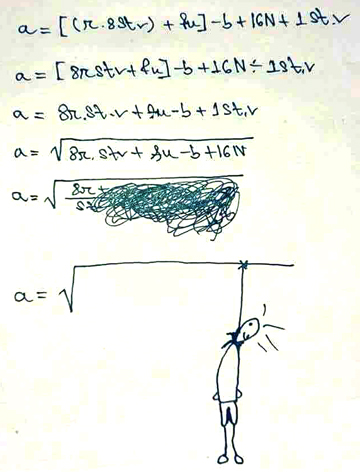 a = [(r.8st.v) + fu] - b + 16N + 1st.v
a = [8rstv + fu] - b + 16N ÷ 1st.v
a = 8r.st.v + fu - b + 1st.v
a = √8r.stv + fu - b + 16N
a = √8r +
a = √